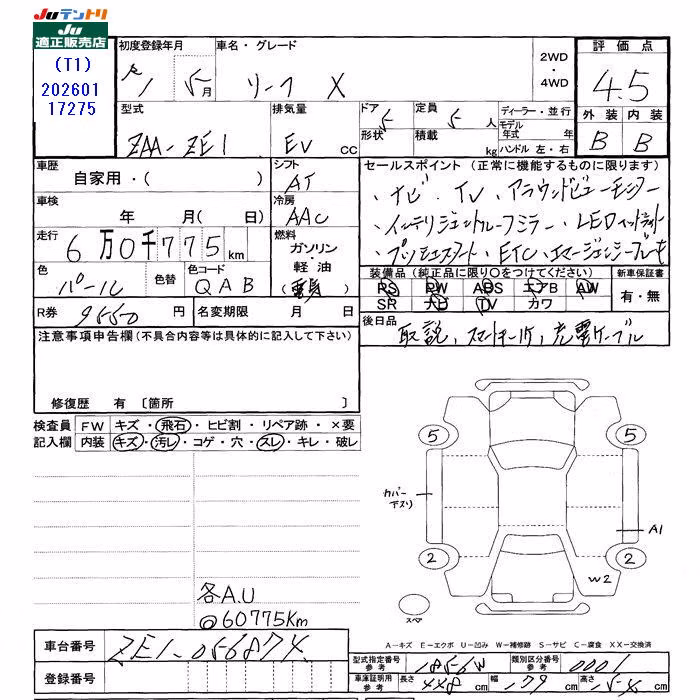 Juテントリ
Ju
適正販売店
(T1)
202601
17275
初度登録年月 車名・グレード 2WD・4WD 評価点
R 1 5月 リーフ X 4.5
型式 排気量 ドア 定員 ディーラー・並行 外装 内装
ZAA-ZE1 EV cc 5 5人 モデル年式 年 B B
形状 積載 kg ハンドル 左・右
車歴 シフト セールスポイント (正常に機能するものに限ります)
自家用・( ) AT ・ナビ・TV・アラウンドビューモニター
車検 冷房 ・インテリジェントルームミラー・LEDヘッドライト
年 月( 日) AAC ・プロパイロット・ETC・エマージェンシーブレーキ
走行 燃料
6万0千775km ガソリン・軽油
色 色替 色コード (電気)
パール QAB
装備品 (純正品に限り〇をつけてください) 新車保証書
PS PW ABS エアB AW 有・無
SR ナビ TV カワ
R券 9550円 名変期限 月 日
後日品 取説、スマートキー1ケ、充電ケーブル
注意事項申告欄 (不具合内容等は具体的に記入して下さい)
修復歴 有 〔箇所 〕
検査員 FW キズ・飛石・ヒビ割・リペア跡・×要
記入欄 内装 キズ・汚レ・コゲ・穴・スレ・キレ・破レ
5 5
カバー
下スリ
A1
2 2
W2
スペア
各A.U
@60775Km
A-キズ E-エクボ U-凹み W-補修跡 S-サビ C-腐食 XX-交換済
車台番号 ZE1-056874
型式指定番号 参考 1856W 類別区分番号 参考 0001
登録番号
車庫証明用 参考 長さ 448cm 幅 179cm 高さ 154cm